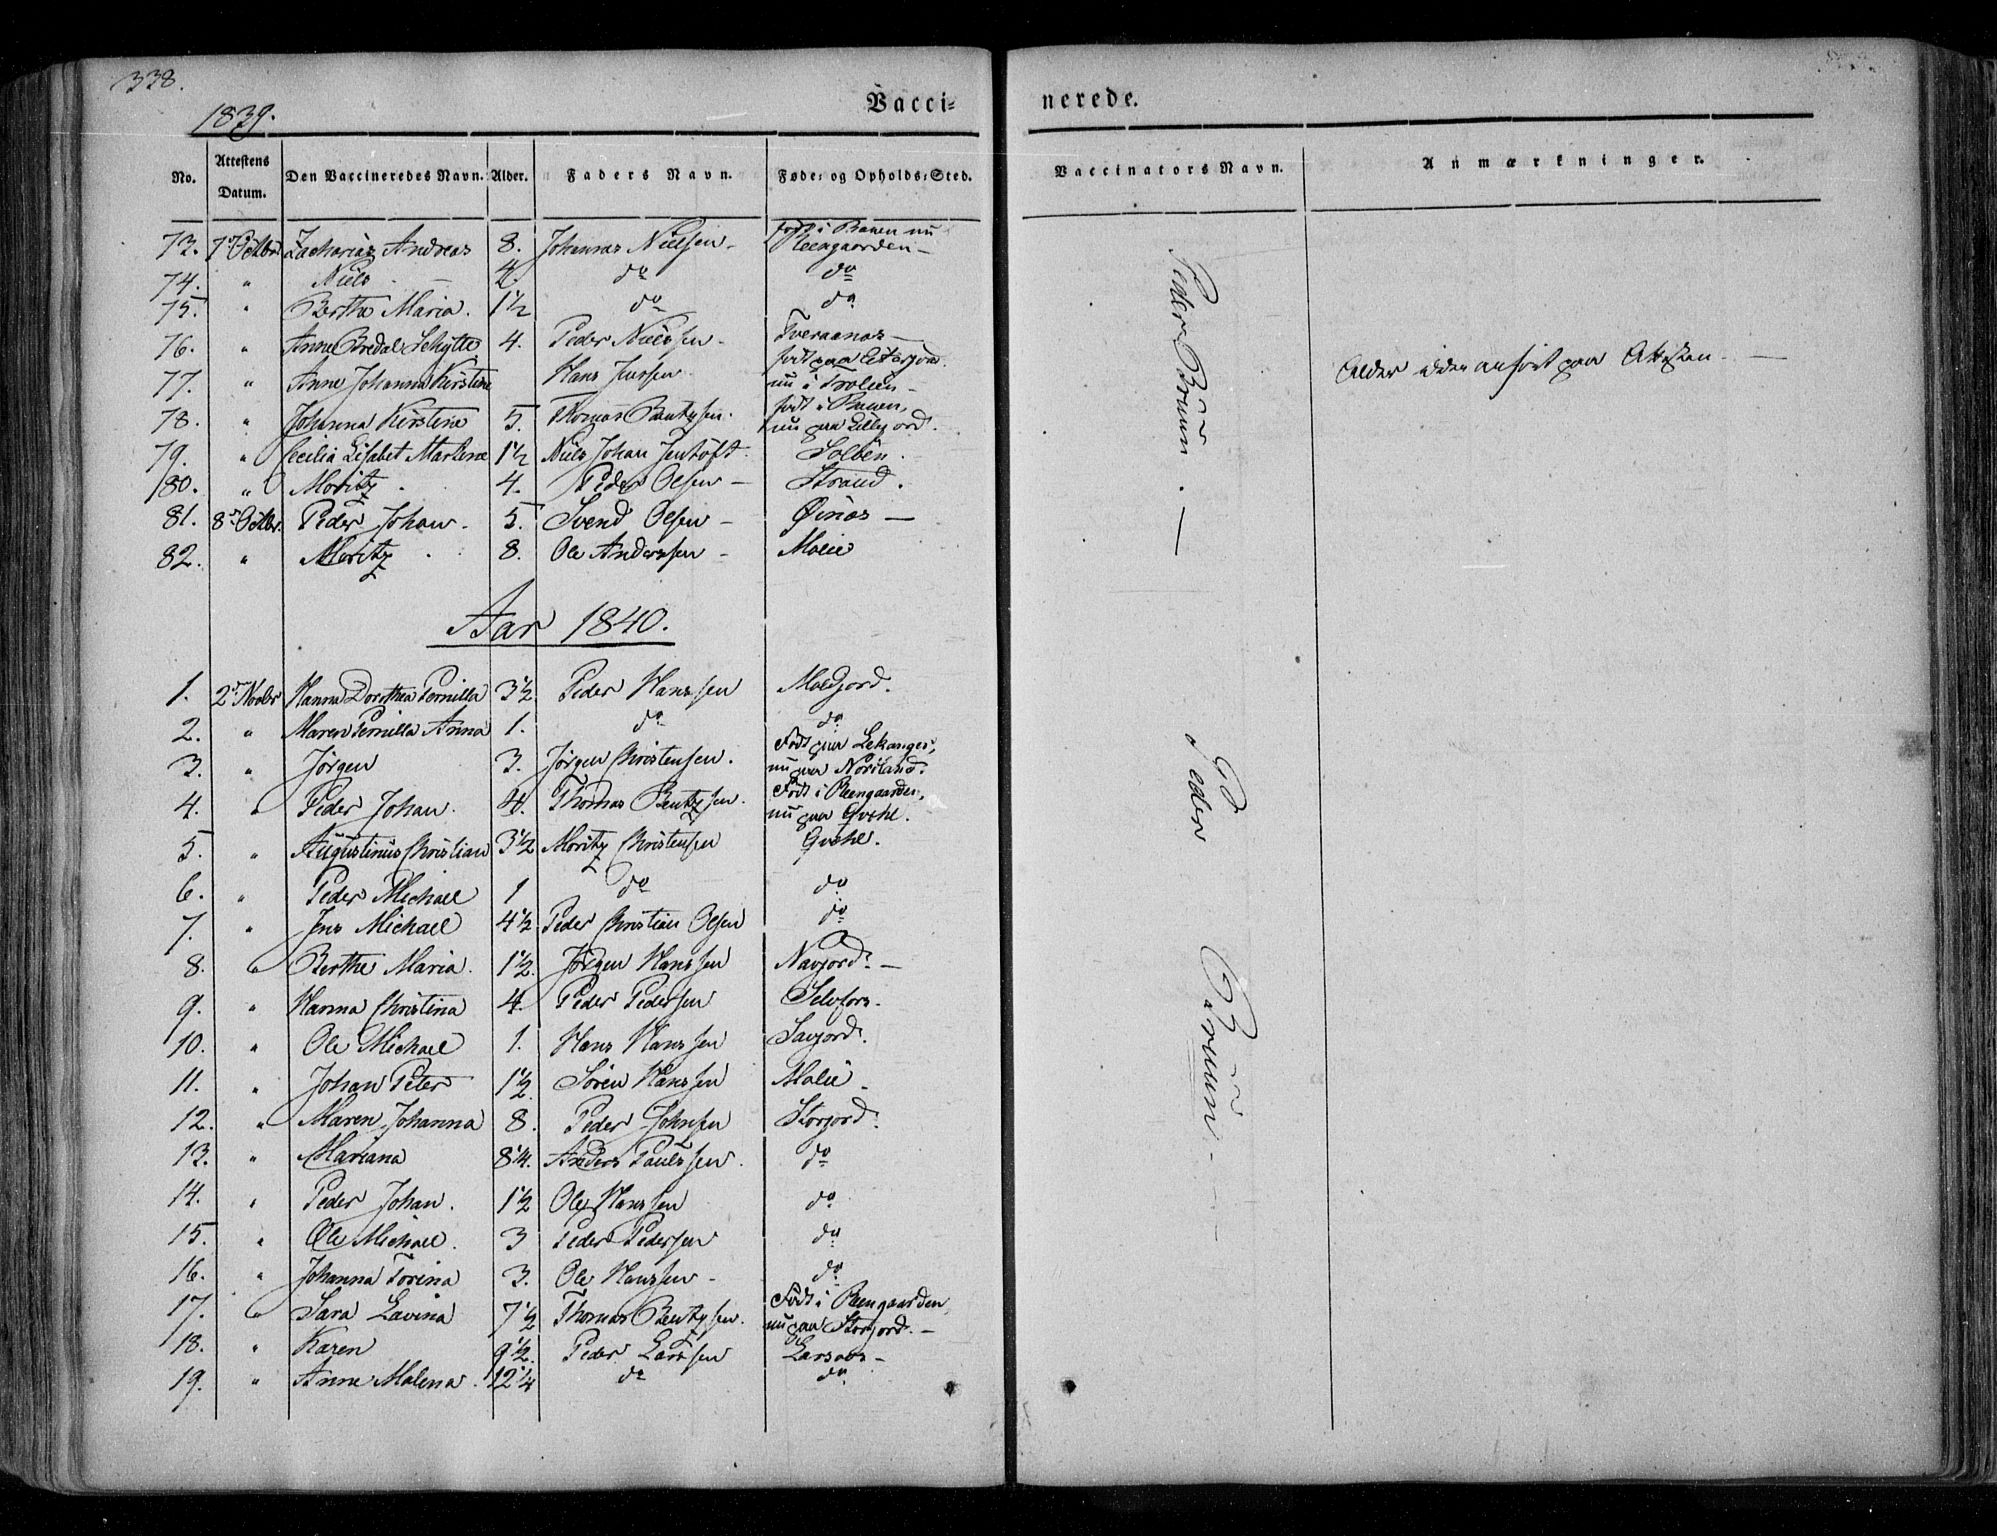 338.
1839.
Vacci-
nerede.
No. Attestens Datum. Den Vaccineredes Navn. Alder. Faders Navn. Føde- og Opholds-Sted. Vaccinators Navn. Anmærkninger.
73. 7de Octbr Zacharias Andreas 8. Johannes Nielsen - født i nu Reengaarden -
74. " Niels 4. do do
75. " Berthe Maria. 1 1/2 do do
76. " Anne Bredal Schytte 4. Peder Nielssen - Tveraanas -
77. " Anne Johanna Kirstine Hans Jenssen født paa nu i Trolien - Alder ikke anført paa Attesten. -
78. " Johanna Kirstine 5. Thomas Bentzsen. født i nu paa Lillejord.
79. " Cecilia Lisabet Marlena 1 1/2 Niels Johan Jentoft. Solben.
80. " Moritz. 4. Peder Olsen - Strand.
81. 8de Octbr. Peder Johan. 5. Svend Olsen - Øinæs -
82. " Moritz. 8. Ole Anderssen - Molie
Peder Bruun. -
Aar 1840.
1. 2de Novbr Hanna Dorothea Pernilla 3 1/2 Peder Hanssen Moldjord.
2. " Maren Pernilla Anna 1. do do
3. " Jørgen 3. Jørgen Christensen. Født paa Lekanger, nu paa Noviland.
4. " Peder Johan. 4. Thomas Bentzsen. Født i Reengaarden, nu paa Gvehl.
5. " Augustinus Christian 3 1/2 Moritz Christensen Gvehl.
6. " Peder Michael 1 do do
7. " Jens Michael 4 1/2 Peder Christian Olsen do
8. " Berthe Maria. 1 1/2. Jørgen Hanssen Navjord. -
9. " Hanna Christina 4. Peder Pedersen Selvfors.
10. " Ole Michael 1. Hans Hanssen Savjord.
11. " Johan Peter 1 1/2. Søren Hanssen Molie -
12. " Maren Johanna 8. Peder Johnsen Storjord.
13. " Mariana 8 1/4. Anders Paulssen. do
14. " Peder Johan. 1 1/2 Ole Hanssen do
15. " Ole Michael. 3 Peder Pedersen do
16. " Johanna Torina 3. Ole Hanssen - do
17. " Sara Lavina 7 1/2 Thomas Bentzsen. Født i Reengaarden, nu paa Storjord. -
18. " Karen 9 1/2. Peder Larssen Larsos -
19. " Anne Malena. 12 1/4 do do
Peder Bruun -